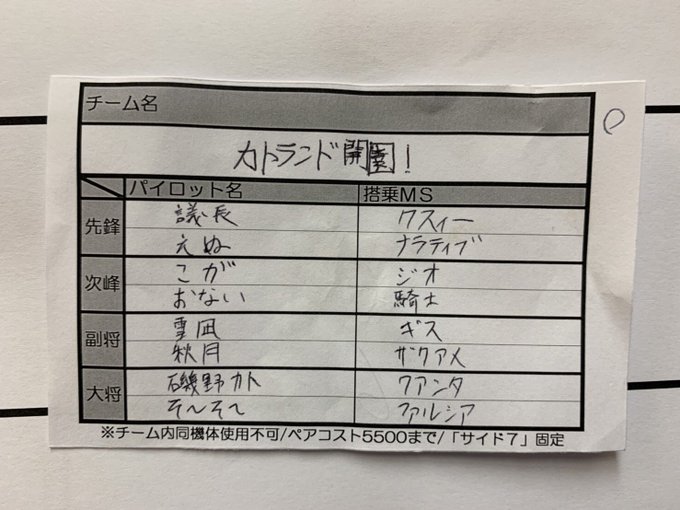 チーム名
カトランド開園!
パイロット名 搭乗MS
先鋒 議長 クスィー
えぬ ナラティブ
次峰 こが ジオ
おない 騎士
副将 雲凪 ギス
秋月 サンクアメ
大将 磯野カト クアンタ
そ〜そ〜 ファルシア
※チーム内同機体使用不可/ペアコスト5500まで/「サイド7」固定